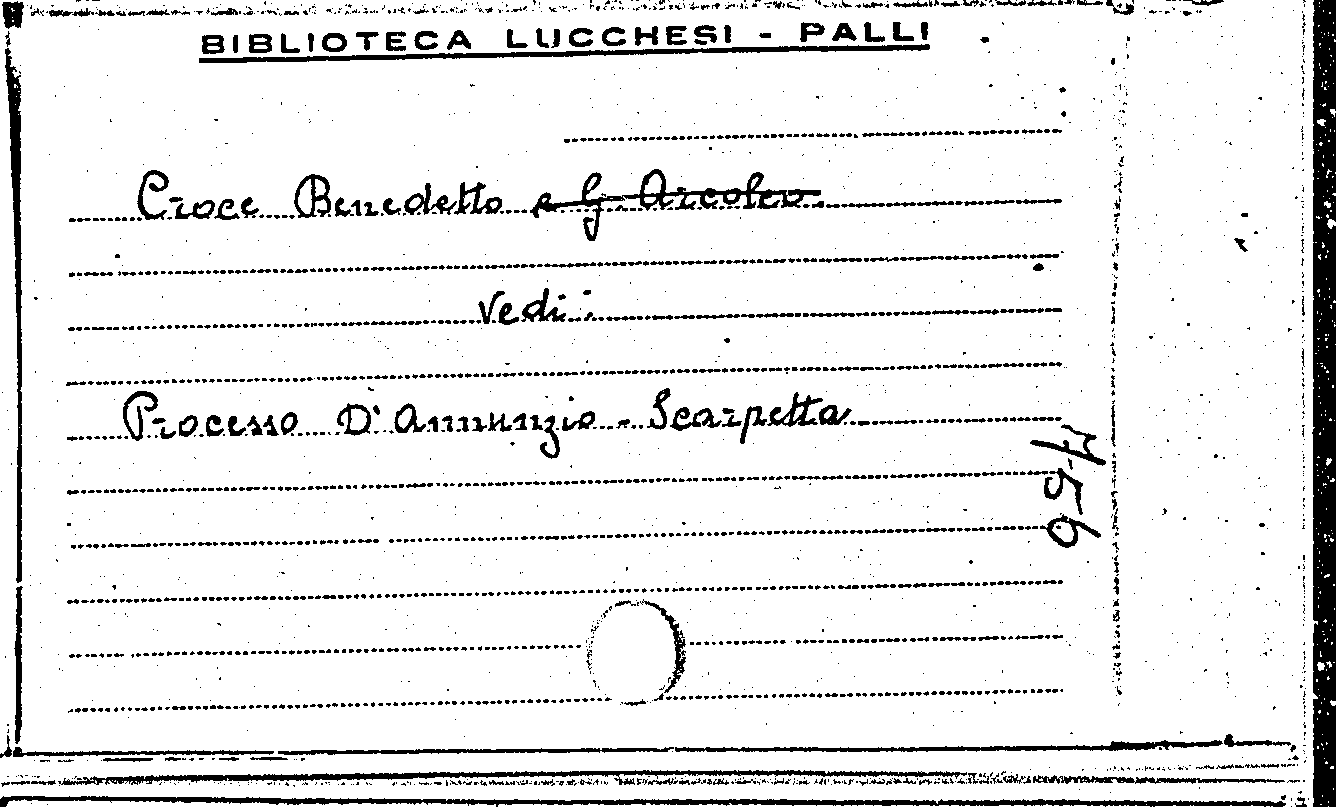 BIBLIOTECA LUCCHESI - PALLI
Croce Benedetto e G. Arcoleo.
Vedi:
Processo D'Annunzio - Scarpetta